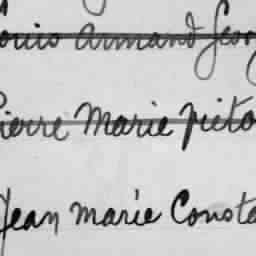 Louis Armand Geor
Pierre Marie Victo
Jean Marie Consta